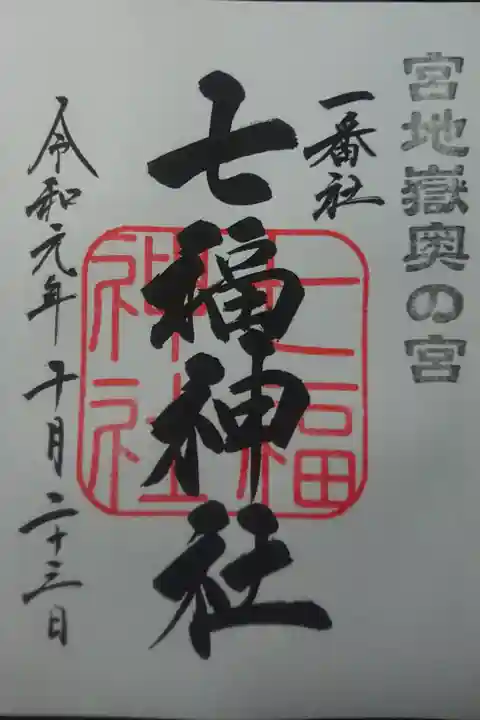 宮地嶽奥の宮
一番社
七福神社
七福
神社
令和元年十月二十三日